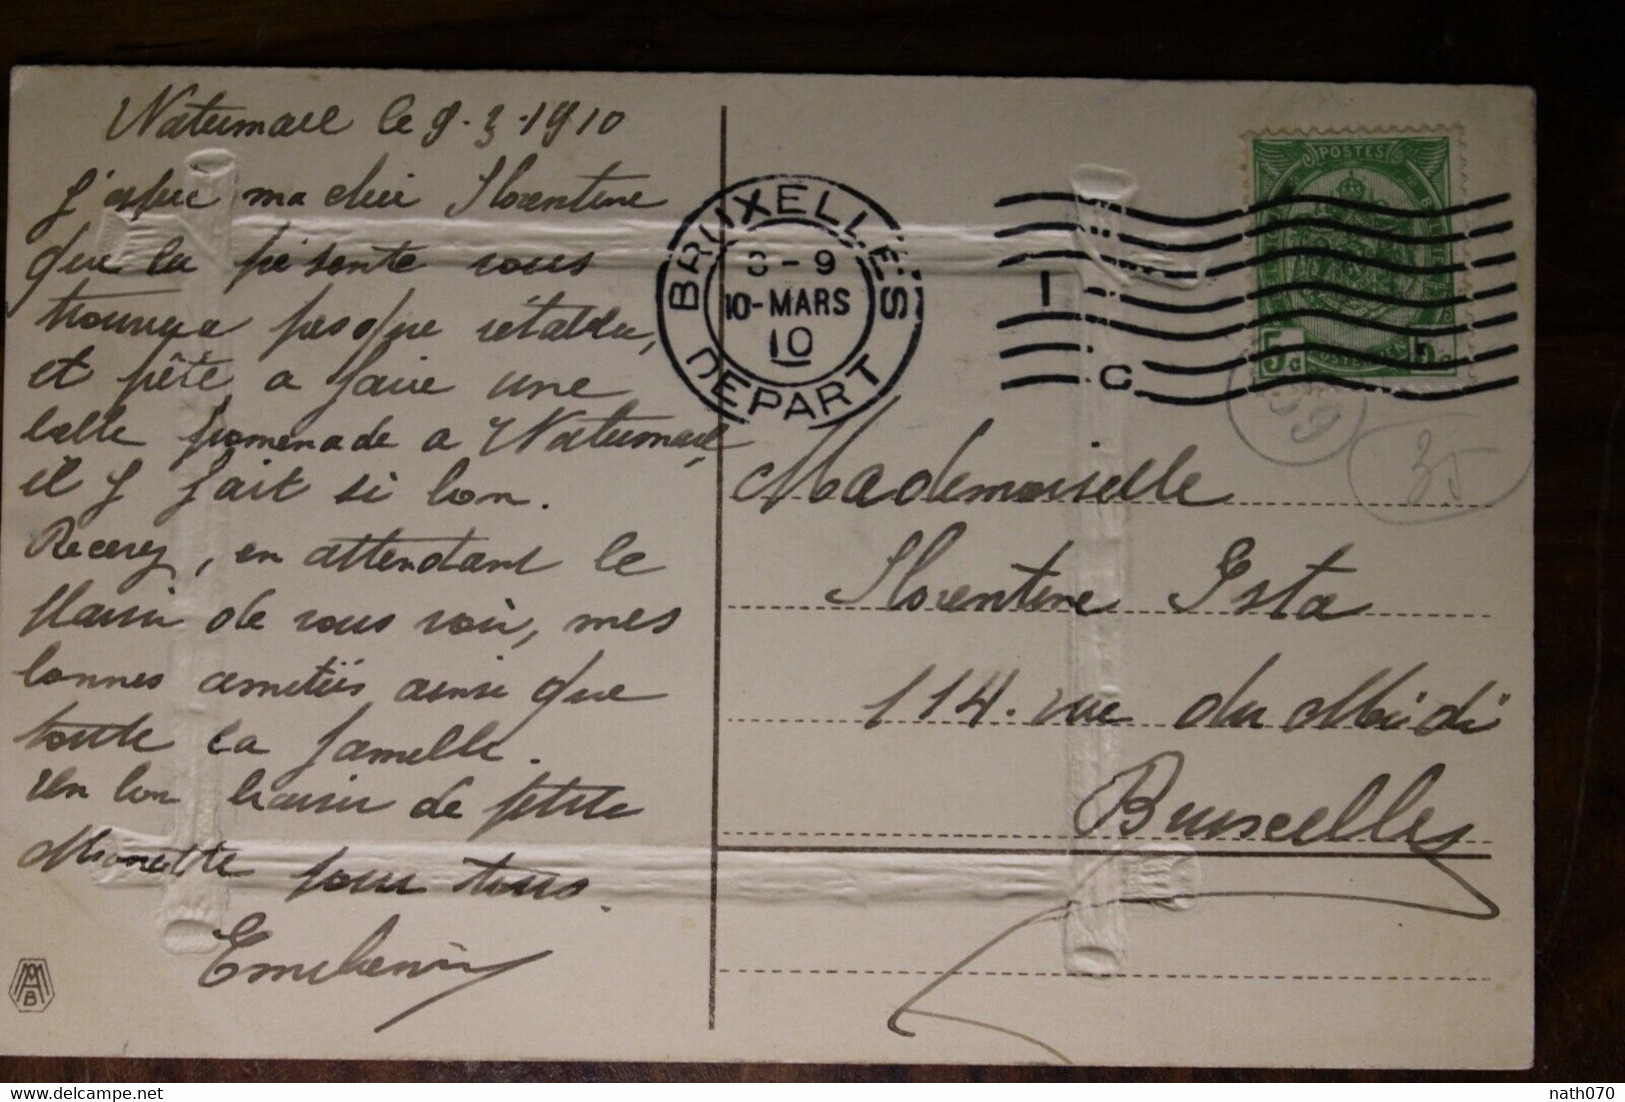 Watermael le 9.3.1910
J'espère ma chère Florentine
que la présente vous
trouvera presque rétablie,
et prête a faire une
belle promenade a Watermael,
il y fait si bon.
Recevez, en attendant le
plaisir de vous voir, mes
bonnes amitiés ainsi que
toute la famille.
Un bon baiser de petite
pour tous.
MAM
B
BRUXELLES
8-9
10-MARS
10
DEPART
1
C
POSTES
5c 5c
39
35
Mademoiselle
Florentine Ista
114. rue du Midi
Bruxelles
nath070